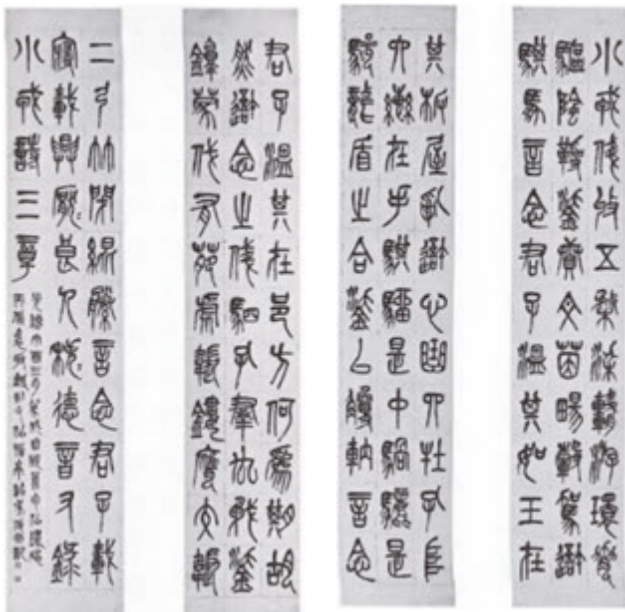 小戎俴收五楘梁輈游環脅
驅陰靷鋈續文茵暢轂駕我
騏馵言念君子溫其如玉在
其板屋亂我心曲四牡孔阜
六轡在手騏騮是中騧驪是
驂龍盾之合鋈以觼軜言念
君子溫其在邑方何為期胡
然我念之俴駟孔羣厹矛鋈
錞蒙伐有苑虎韔鏤膺交韔
二弓竹閉緄縢言念君子載
寢載興厭〻良人秩〻德音右錄
小戎詩三章